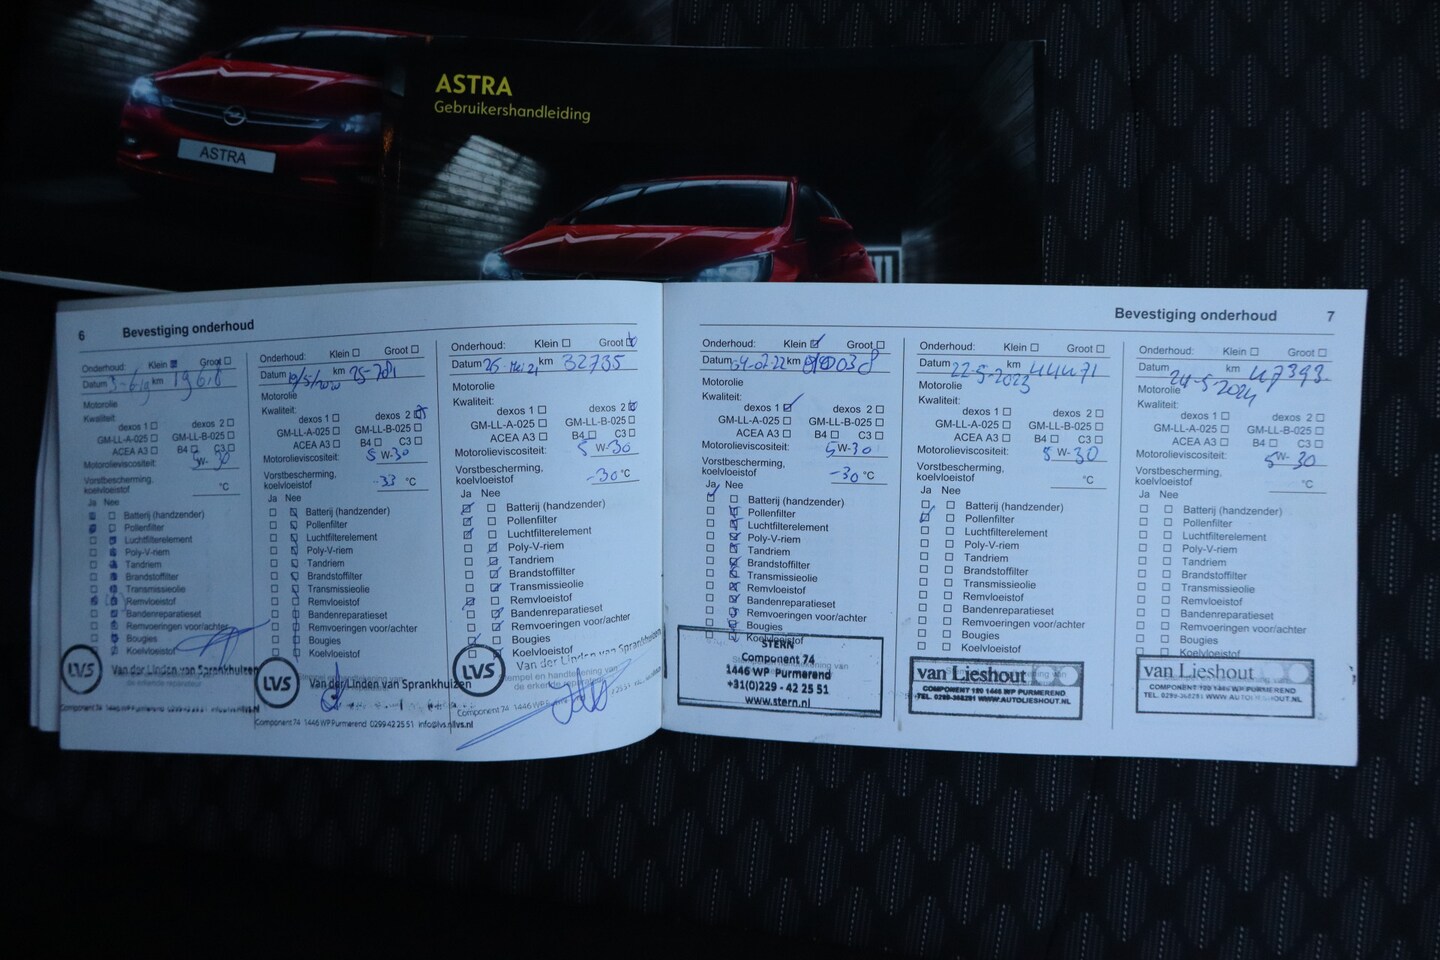 ASTRA
ASTRA
Gebruikershandleiding
6 Bevestiging onderhoud
Onderhoud: Klein Groot
Datum 3-6-19 km 19618
Motorolie
Kwaliteit:
dexos 1 dexos 2
GM-LL-A-025 GM-LL-B-025
ACEA A3 B4 C3
Motorolieviscositeit: 5W-30
Vorstbescherming,
koelvloeistof °C
Ja Nee
Batterij (handzender)
Pollenfilter
Luchtfilterelement
Poly-V-riem
Tandriem
Brandstoffilter
Transmissieolie
Remvloeistof
Bandenreparatieset
Remvoeringen voor/achter
Bougies
Koelvloeistof
LVS Van der Linden van Sprankhuizen
Onderhoud: Klein Groot
Datum km 25-781
Motorolie
Kwaliteit:
dexos 1 dexos 2
GM-LL-A-025 GM-LL-B-025
ACEA A3 B4 C3
Motorolieviscositeit: 5 W-30
Vorstbescherming,
koelvloeistof -33 °C
Ja Nee
Batterij (handzender)
Pollenfilter
Luchtfilterelement
Poly-V-riem
Tandriem
Brandstoffilter
Transmissieolie
Remvloeistof
Bandenreparatieset
Remvoeringen voor/achter
Bougies
Koelvloeistof
LVS Van der Linden van Sprankhuizen
Component 74 1446 WP Purmerend 0299 42 25 51 info@lvs.nl
Onderhoud: Klein Groot
Datum 26 mei 21 km 32735
Motorolie
Kwaliteit:
dexos 1 dexos 2
GM-LL-A-025 GM-LL-B-025
ACEA A3 B4 C3
Motorolieviscositeit: 5 W-30
Vorstbescherming,
koelvloeistof -30 °C
Ja Nee
Batterij (handzender)
Pollenfilter
Luchtfilterelement
Poly-V-riem
Tandriem
Brandstoffilter
Transmissieolie
Remvloeistof
Bandenreparatieset
Remvoeringen voor/achter
Bougies
Koelvloeistof
LVS Van der Linden van Sprankhuizen
Stempel en handtekening van
de erkende reparateur
Component 74 1446 WP
Bevestiging onderhoud 7
Onderhoud: Klein Groot
Datum km
Motorolie
Kwaliteit:
dexos 1 dexos 2
GM-LL-A-025 GM-LL-B-025
ACEA A3 B4 C3
Motorolieviscositeit: 5W-30
Vorstbescherming,
koelvloeistof -30 °C
Ja Nee
Batterij (handzender)
Pollenfilter
Luchtfilterelement
Poly-V-riem
Tandriem
Brandstoffilter
Transmissieolie
Remvloeistof
Bandenreparatieset
Remvoeringen voor/achter
Bougies
Koelvloeistof
STERN
Component 74
1446 WP Purmerend
+31(0)229 - 42 25 51
www.stern.nl
Onderhoud: Klein Groot
Datum 22-5-2023 km 44471
Motorolie
Kwaliteit:
dexos 1 dexos 2
GM-LL-A-025 GM-LL-B-025
ACEA A3 B4 C3
Motorolieviscositeit: 5 W-30
Vorstbescherming,
koelvloeistof °C
Ja Nee
Batterij (handzender)
Pollenfilter
Luchtfilterelement
Poly-V-riem
Tandriem
Brandstoffilter
Transmissieolie
Remvloeistof
Bandenreparatieset
Remvoeringen voor/achter
Bougies
Koelvloeistof
van Lieshout
COMPONENT 180 1446 WP PURMEREND
TEL. 0299-368291 WWW.AUTOLIESHOUT.NL
Onderhoud: Klein Groot
Datum 24-5-2024 km 47393
Motorolie
Kwaliteit:
dexos 1 dexos 2
GM-LL-A-025 GM-LL-B-025
ACEA A3 B4 C3
Motorolieviscositeit: 5W-30
Vorstbescherming,
koelvloeistof °C
Ja Nee
Batterij (handzender)
Pollenfilter
Luchtfilterelement
Poly-V-riem
Tandriem
Brandstoffilter
Transmissieolie
Remvloeistof
Bandenreparatieset
Remvoeringen voor/achter
Bougies
Koelvloeistof
van Lieshout
COMPONENT 180 1446 WP PURMEREND
TEL. 0299-368291 WWW.AUTOLIESHOUT.NL